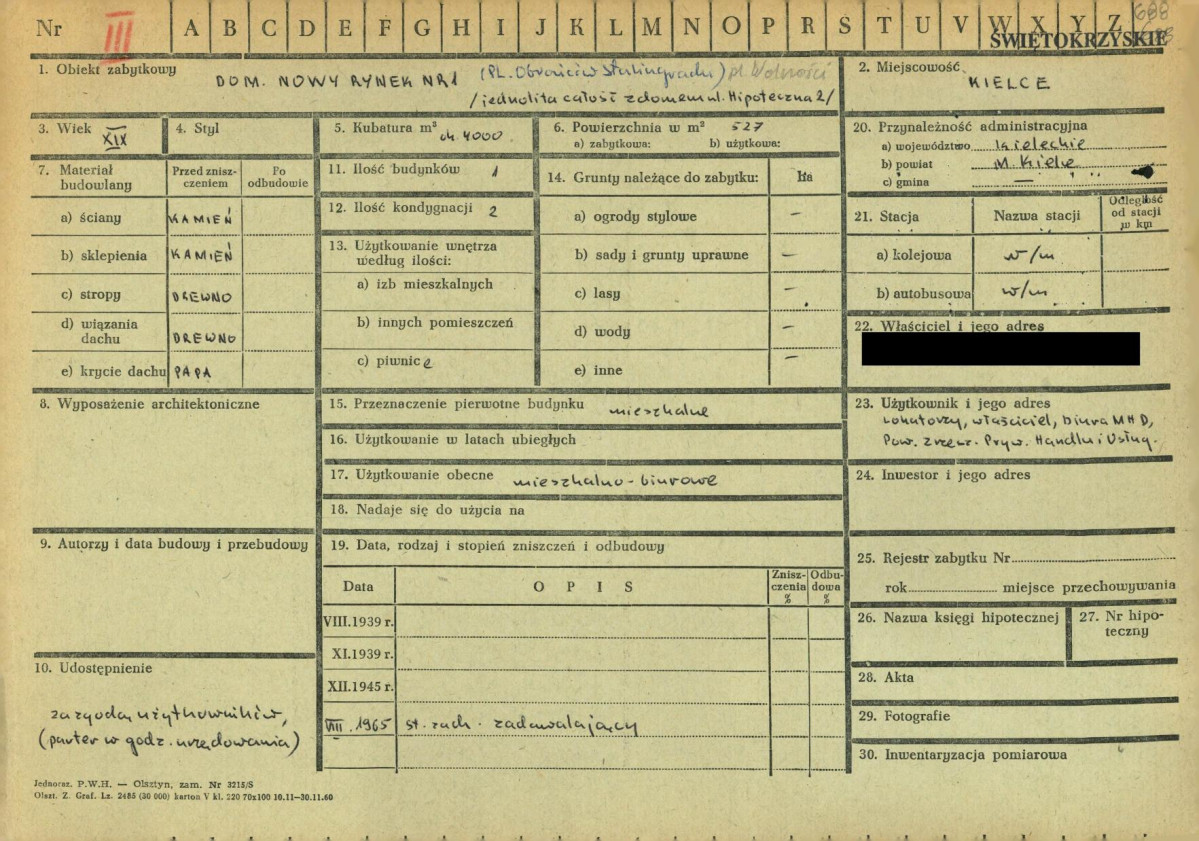 Nr III A B C D E F G H I J K L M N O P R S T U V W X Y Z
688
ŚWIĘTOKRZYSKIE
1. Obiekt zabytkowy DOM. NOWY RYNEK NR 1 (PL. Obrońców Stalingradu) pl. Wolności
/jednolita całość z domem ul. Hipoteczna 2/
2. Miejscowość
KIELCE
3. Wiek XIX
4. Styl
5. Kubatura m³ ok. 4000
6. Powierzchnia w m² 527
a) zabytkowa: b) użytkowa:
20. Przynależność administracyjna
a) województwo kieleckie
b) powiat M. Kielce
c) gmina —
7. Materiał budowlany
Przed zniszczeniem
Po odbudowie
a) ściany KAMIEŃ
b) sklepienia KAMIEŃ
c) stropy DREWNO
d) wiązania dachu DREWNO
e) krycie dachu PAPA
11. Ilość budynków 1
12. Ilość kondygnacji 2
13. Użytkowanie wnętrza
według ilości:
a) izb mieszkalnych
b) innych pomieszczeń
c) piwnic 2
14. Grunty należące do zabytku: Ha
a) ogrody stylowe —
b) sady i grunty uprawne —
c) lasy —
d) wody —
e) inne —
21. Stacja
Nazwa stacji
Odległość
od stacji
w km
a) kolejowa w/m
b) autobusowa w/m
22. Właściciel i jego adres
8. Wyposażenie architektoniczne
15. Przeznaczenie pierwotne budynku mieszkalne
16. Użytkowanie w latach ubiegłych
17. Użytkowanie obecne mieszkalno-biurowe
18. Nadaje się do użycia na
23. Użytkownik i jego adres
Lokatorzy, właściciel, biura MHD,
Pow. zrzesz. Pryw. Handlu i Usług.
24. Inwestor i jego adres
9. Autorzy i data budowy i przebudowy
19. Data, rodzaj i stopień zniszczeń i odbudowy
Data
O P I S
Znisz-
czenia
%
Odbu-
dowa
%
VIII.1939 r.
XI.1939 r.
XII.1945 r.
VIII. 1965 st. zach. zadawalający
25. Rejestr zabytku Nr
rok miejsce przechowywania
26. Nazwa księgi hipotecznej
27. Nr hipo-
teczny
28. Akta
29. Fotografie
30. Inwentaryzacja pomiarowa
10. Udostępnienie
za zgodą użytkowników,
(parter w godz. urzędowania)
Jednoraz. P.W.H. — Olsztyn, zam. Nr 3215/S
Olszt. Z. Graf. Lz. 2485 (30 000) karton V kl. 220 70x100 10.11—30.11.60